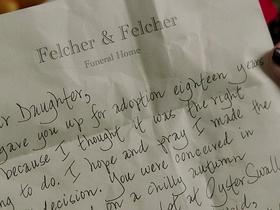 Felcher & Felcher
Funeral Home
Daughter,
gave you up for adoption eighteen years
because I thought it was the right
ng to do. I hope and pray I made the
decision. You were conceived in
on a chilly autumn
at Oyster Swall